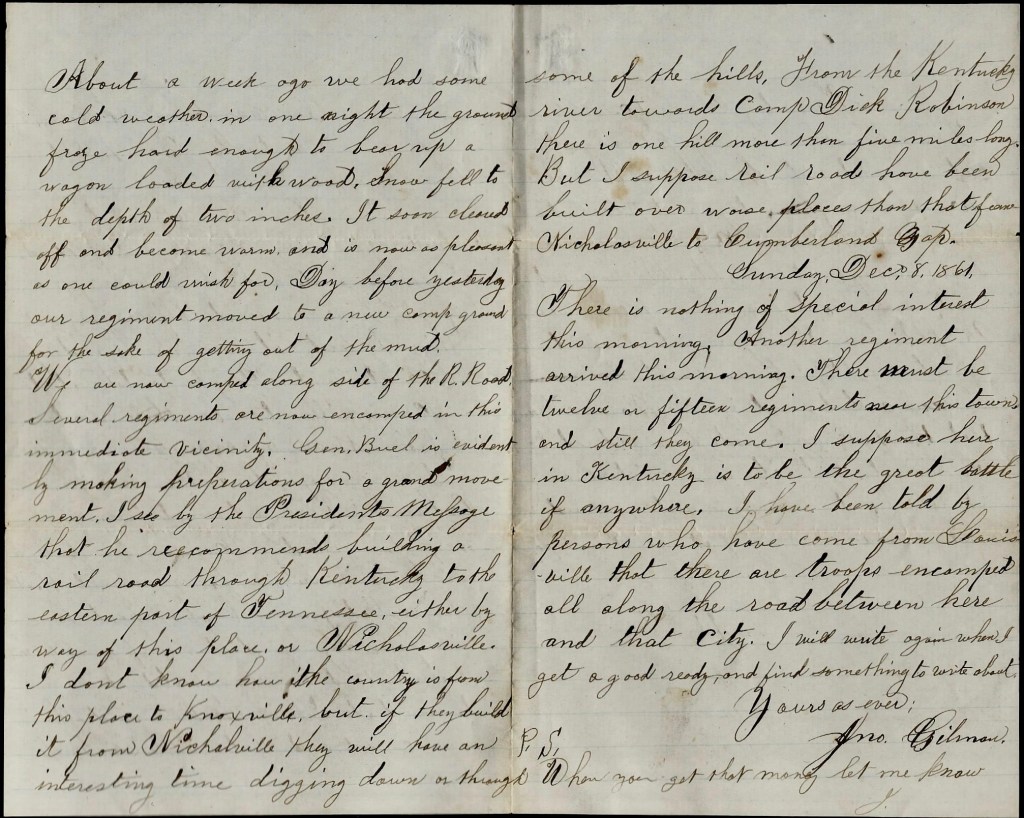 About a week ago we had some
cold weather. in one night the ground
froze hard enough to bear up a
wagon loaded with wood. Snow fell to
the depth of two inches. It soon cleared
off and become warm. and is now as pleasant
as one could wish for. Day before yesterday
our regiment moved to a new camp ground
for the sake of getting out of the mud.
We are now camped along side of the R. Road.
Several regiments are now encamped in this
immediate vicinity. Gen. Buel is evident
ly making preperations for a grand move-
ment. I see by the Presidents Message
that he reecommends building a
rail road through Kentucky to the
eastern part of Tennessee, either by
way of this place, or Nicholasville.
I dont know how the country is from
this place to Knoxville, but if they build
it from Nicholville they will have an
interesting time digging down or through
some of the hills. From the Kentucky
river towards Camp Dick Robinson
there is one hill more than five miles long.
But I suppose rail roads have been
built over worse places than that from
Nicholasville to Cumberland Gap.
Sunday, Dec. 8, 1861.
There is nothing of special interest
this morning. Another regiment
arrived this morning. There must be
twelve or fifteen regiments near this town.
and still they come. I suppose here
in Kentucky is to be the great battle
if anywhere. I have been told by
persons who have come from Louis-
-ville that there are troops encamped
all along the road between here
and that City. I will write again when I
get a good ready, and find something to write about.
Yours as ever;
Jno. Gilman.
P. S.
When you get that money let me know
J.